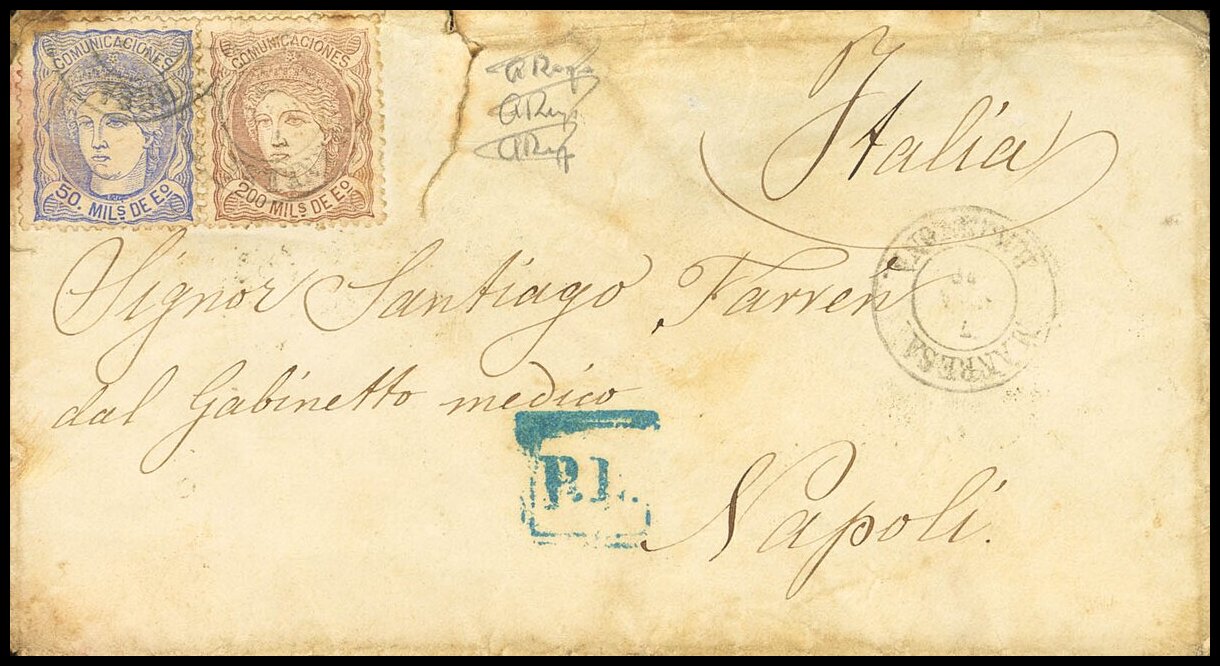 COMUNICACIONES
50. MILS DE EO
COMUNICACIONES
200 MILS DE EO
Italia
Signor Santiago Farren
dal Gabinetto medico
Napoli.
P.D.
MANRESA
BARCELONA